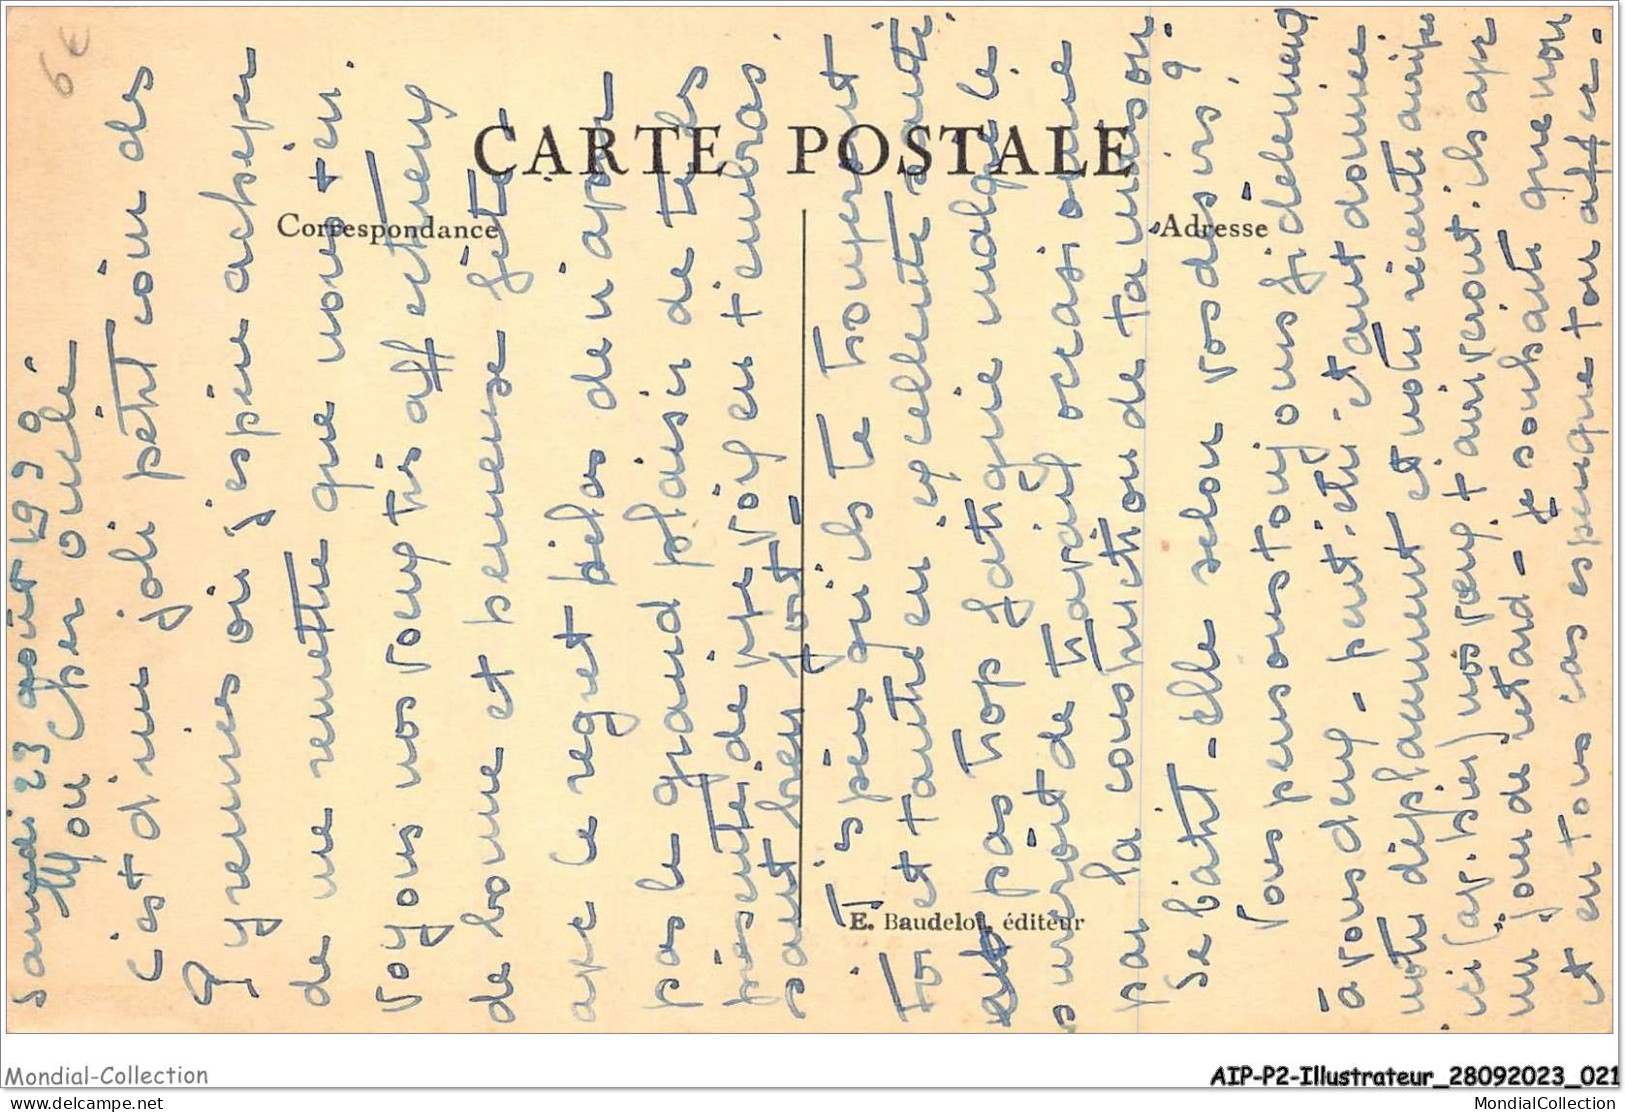 samedi 23 août 1999.
Mon cher oncle
C'est d'un joli petit coin des
Pyrenées où j'espère achever
de me remettre que nous t'en
voyons nos voeux très affectueux
de bonne et heureuse fête
avec le regret hélas de n'avoir
pas le grand plaisir de te les
présenter de vive voix en t'embras
sant bien fort -
J'espère qu'ils te trouveront
toi et tante en excellente santé
et pas trop fatigué malgré le
surcroît de travaux occasionné
par la construction de ta maison
se bâtit-elle selon vos désirs ?
Nous pensons toujours fidèlement
à vous deux - peut-être étant donnée
notre déplacement et notre récente arrivée
ici nos voeux t'arriveront ils avec
un jour de retard - je souhaite que non
et en tous cas espère que ton affec-
CARTE POSTALE
Correspondance
Adresse
E. Baudelot, éditeur
6€
Mondial-Collection
AIP-P2-Illustrateur_28092023_021
www.delcampe.net
MondialCollection